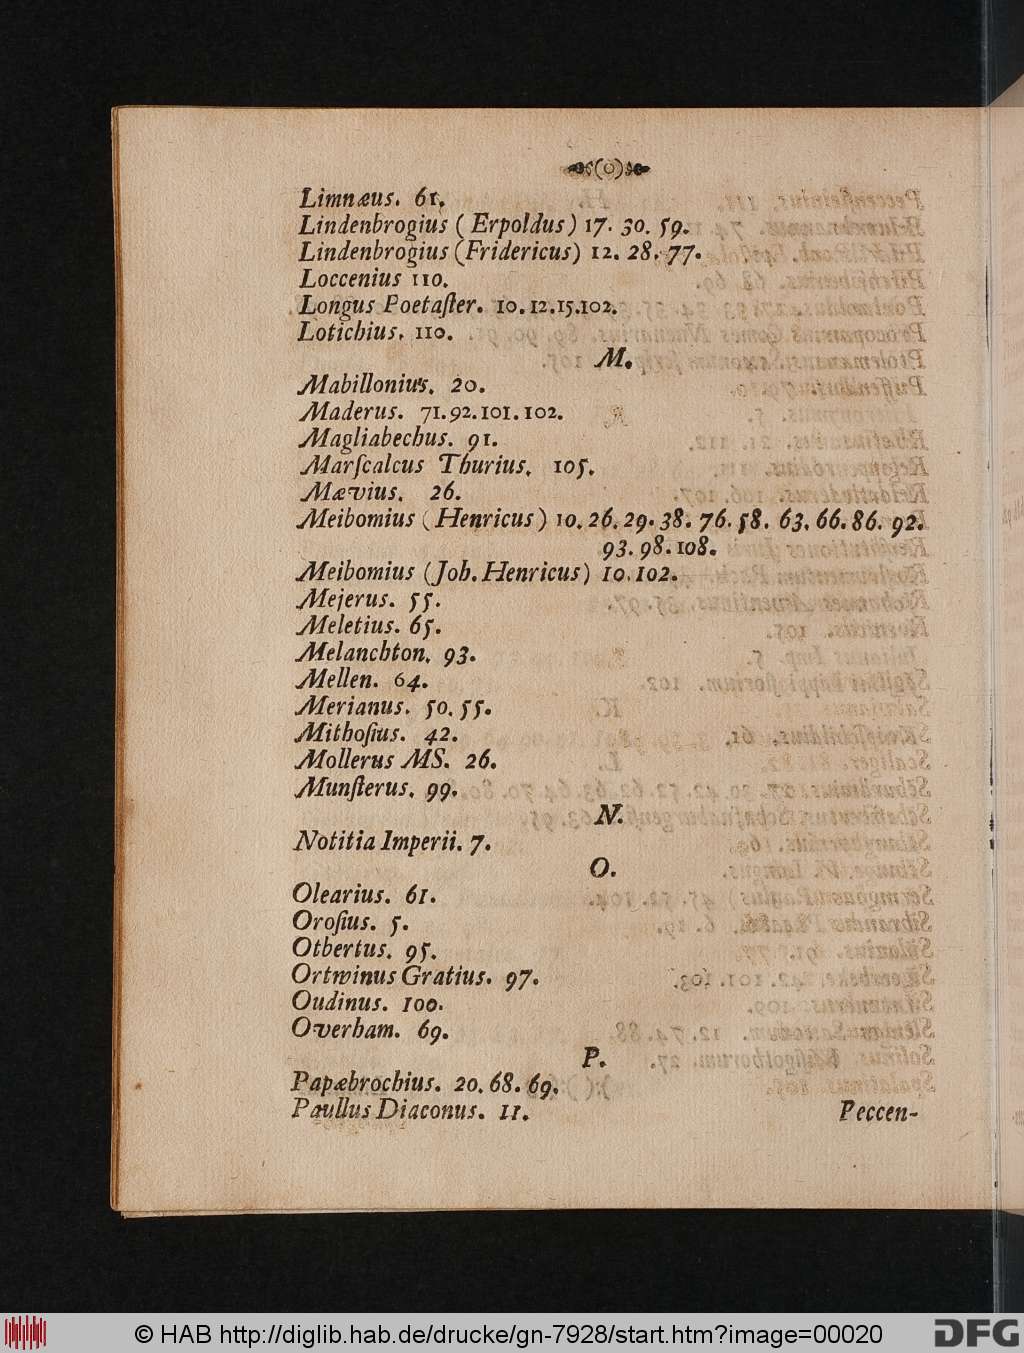 Limnæus. 61.
Lindenbrogius (Erpoldus) 17. 30. 59.
Lindenbrogius (Fridericus) 12. 28. 77.
Loccenius 110.
Longus Poetaſter. 10.12.15.102.
Lotichius. 110.
M.
Mabillonius. 20.
Maderus. 71.92.101.102.
Magliabechus. 91.
Marſcalcus Thurius. 105.
Mævius. 26.
Meibomius (Henricus) 10. 26. 29. 38. 76. 58. 63. 66. 86. 92.
93. 98. 108.
Meibomius (Joh. Henricus) 10.102.
Mejerus. 55.
Meletius. 65.
Melanchton. 93.
Mellen. 64.
Merianus. 50. 55.
Mithoſius. 42.
Mollerus MS. 26.
Munſterus. 99.
N.
Notitia Imperii. 7.
O.
Olearius. 61.
Oroſius. 5.
Otbertus. 95.
Ortwinus Gratius. 97.
Oudinus. 100.
Overham. 69.
P.
Papæbrochius. 20. 68. 69.
Paullus Diaconus. 11.
Peccen-
© HAB http://diglib.hab.de/drucke/gn-7928/start.htm?image=00020
DFG